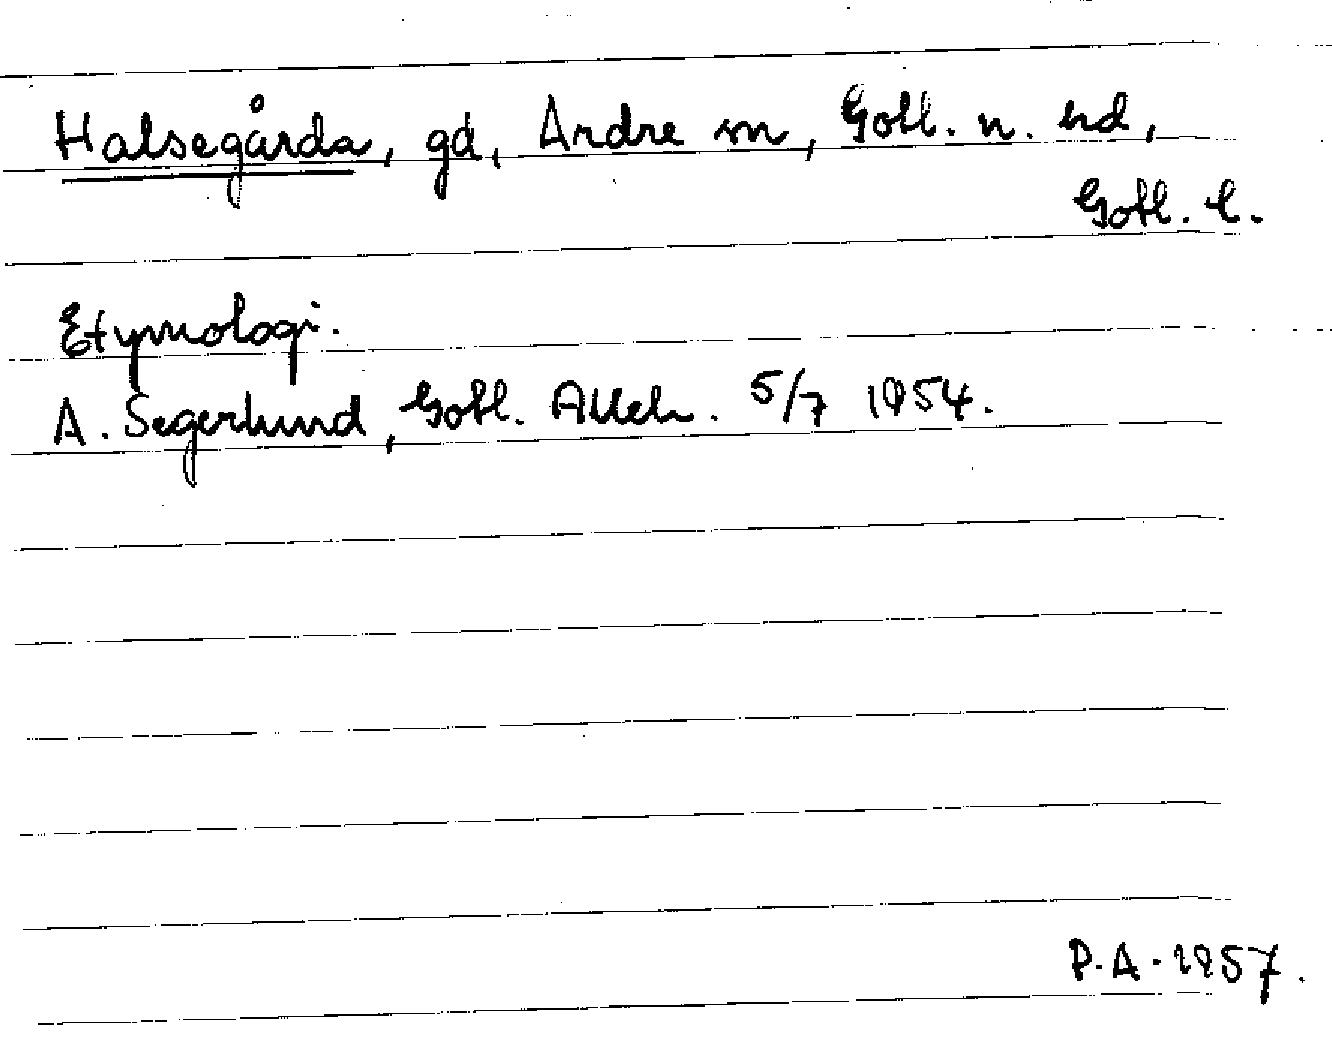 Halsegårda, gd, Ardre sn, Gotl. n. hd,
Gotl. l.
Etymologi.
A. Segerlund, Gotl. Alleh. 5/7 1954.
P.A. 1957.